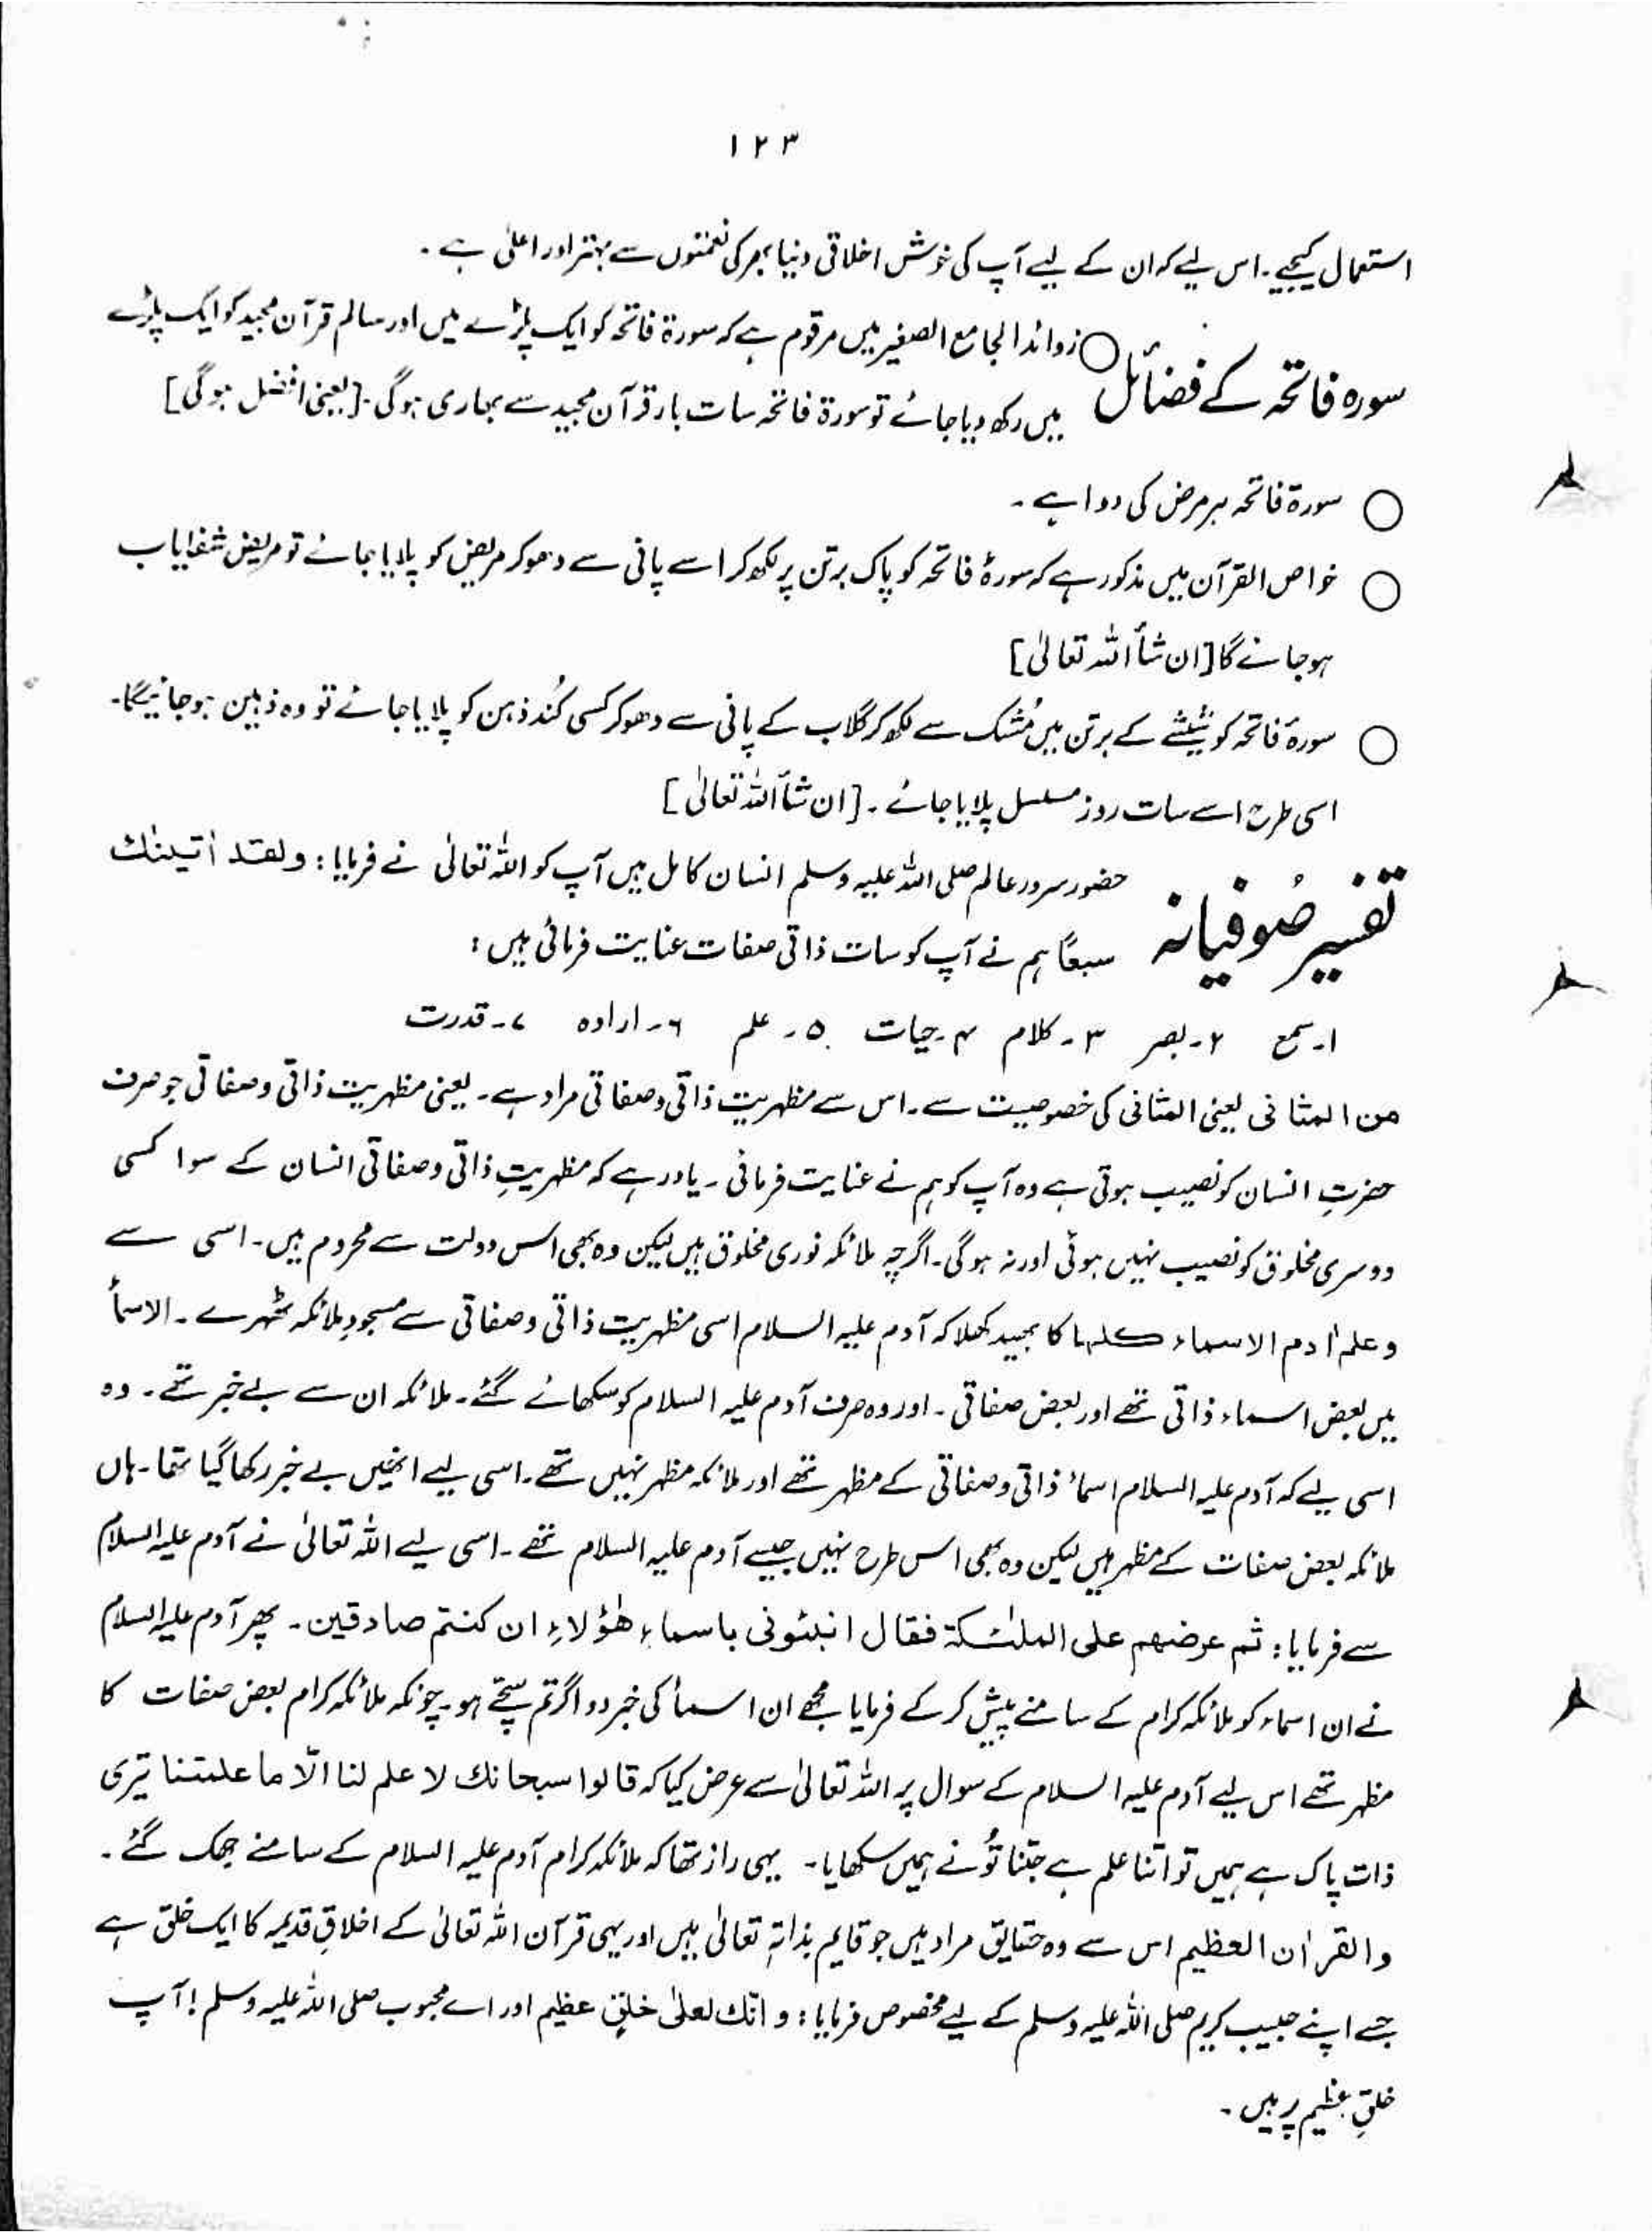 ۱۲۳
استعمال کیجیے۔ اس لیے کہ ان کے لیے آپ کی خوش اخلاقی دنیا بھر کی نعمتوں سے بہتر اور اعلیٰ ہے۔
سورہ فاتحہ کے فضائل
○ زوائد الجامع الصغیر میں مرقوم ہے کہ سورۃ فاتحہ کو ایک پلڑے میں اور سالم قرآن مجید کو ایک پلڑے
میں رکھ دیا جائے تو سورۃ فاتحہ سات بار قرآن مجید سے بھاری ہوگی۔ [یعنی افضل ہوگی]
○ سورۃ فاتحہ ہر مرض کی دوا ہے۔
○ خواص القرآن میں مذکور ہے کہ سورۂ فاتحہ کو پاک برتن پر لکھ کر اسے پانی سے دھو کر مریض کو پلایا جائے تو مریض شفایاب
ہو جائے گا [ان شأ اللہ تعالیٰ]
○ سورۃ فاتحہ کو شیشے کے برتن میں مُشک سے لکھ کر گلاب کے پانی سے دھو کر کسی کُند ذہن کو پلایا جائے تو وہ ذہین ہو جائیگا۔
اسی طرح اسے سات روز مسلسل پلایا جائے۔ [ان شأ اللہ تعالیٰ]
تفسیر صُوفیانہ
حضور سرور عالم صلی اللہ علیہ وسلم انسان کامل ہیں آپ کو اللہ تعالیٰ نے فرمایا: ولقد اٰتینٰك
سبعاً ہم نے آپ کو سات ذاتی صفات عنایت فرمائی ہیں:
۱۔ سمع ۲۔ بصر ۳۔ کلام ۴۔ حیات ۵۔ علم ۶۔ ارادہ ۷۔ قدرت
من المثانی یعنی المثانی کی خصوصیت سے۔ اس سے مظہریت ذاتی و صفاتی مراد ہے۔ یعنی مظہریت ذاتی و صفاتی جو صرف
حضرتِ انسان کو نصیب ہوتی ہے وہ آپ کو ہم نے عنایت فرمائی۔ یاد رہے کہ مظہریتِ ذاتی و صفاتی انسان کے سوا کسی
دوسری مخلوق کو نصیب نہیں ہوئی اور نہ ہوگی۔ اگرچہ ملائکہ نوری مخلوق ہیں لیکن وہ بھی اس دولت سے محروم ہیں۔ اسی سے
وعلم اٰدم الاسماء کلہا کا بھید کھلا کہ آدم علیہ السلام اسی مظہریت ذاتی و صفاتی سے مسجودِ ملائکہ ٹھہرے۔ الاسمأ
میں بعض اسماء ذاتی تھے اور بعض صفاتی۔ اور وہ صرف آدم علیہ السلام کو سکھائے گئے۔ ملائکہ ان سے بے خبر تھے۔ وہ
اسی لیے کہ آدم علیہ السلام اسمأ ذاتی و صفاتی کے مظہر تھے اور ملائکہ مظہر نہیں تھے۔ اسی لیے انھیں بے خبر رکھا گیا تھا۔ ہاں
ملائکہ بعض صفات کے مظہر ہیں لیکن وہ بھی اس طرح نہیں جیسے آدم علیہ السلام تھے۔ اسی لیے اللہ تعالیٰ نے آدم علیہ السلام
سے فرمایا: ثم عرضہم علی الملٰئکۃ فقال انبئونی باسماء ھٰؤلاءِ ان کنتم صادقین۔ پھر آدم علیہ السلام
نے ان اسماء کو ملائکہ کرام کے سامنے پیش کر کے فرمایا مجھے ان اسمأ کی خبر دو اگر تم سچے ہو۔ چونکہ ملائکہ کرام بعض صفات کا
مظہر تھے اس لیے آدم علیہ السلام کے سوال پر اللہ تعالیٰ سے عرض کیا کہ قالوا سبحانك لا علم لنا الّا ما علمتنا تیری
ذات پاک ہے ہمیں تو اتنا علم ہے جتنا تُو نے ہمیں سکھایا۔ یہی راز تھا کہ ملائکہ کرام آدم علیہ السلام کے سامنے جھک گئے۔
والقراٰن العظیم اس سے وہ حقایق مراد ہیں جو قایم بذاتہٖ تعالیٰ ہیں اور یہی قرآن اللہ تعالیٰ کے اخلاقِ قدیمہ کا ایک خلق ہے
جسے اپنے حبیب کریم صلی اللہ علیہ وسلم کے لیے مخصوص فرمایا: وانّك لعلیٰ خلقٍ عظیم اور اے محبوب صلی اللہ علیہ وسلم! آپ
خلقِ عظیم پر ہیں۔